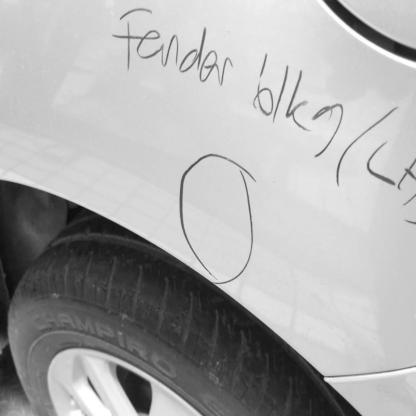 Fender blkg (LH)
CAMPIRO